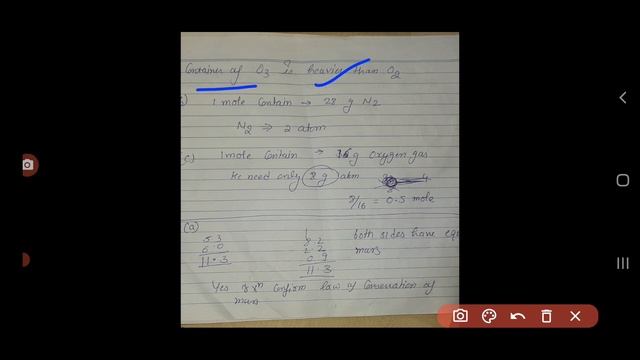 Container of O3 is heavier than O2
b) 1 mole contain → 28 g N2
N2 ⇒ 2 atom
c) 1 mole contain → 16 g oxygen gas
need only 8 g atm
8/16 = 0.5 mole
(a)
5.3
6.0
11.3
8.2
2.2
0.9
11.3
both sides have equ
mass
Yes rxn confirm law of conservation of
mass